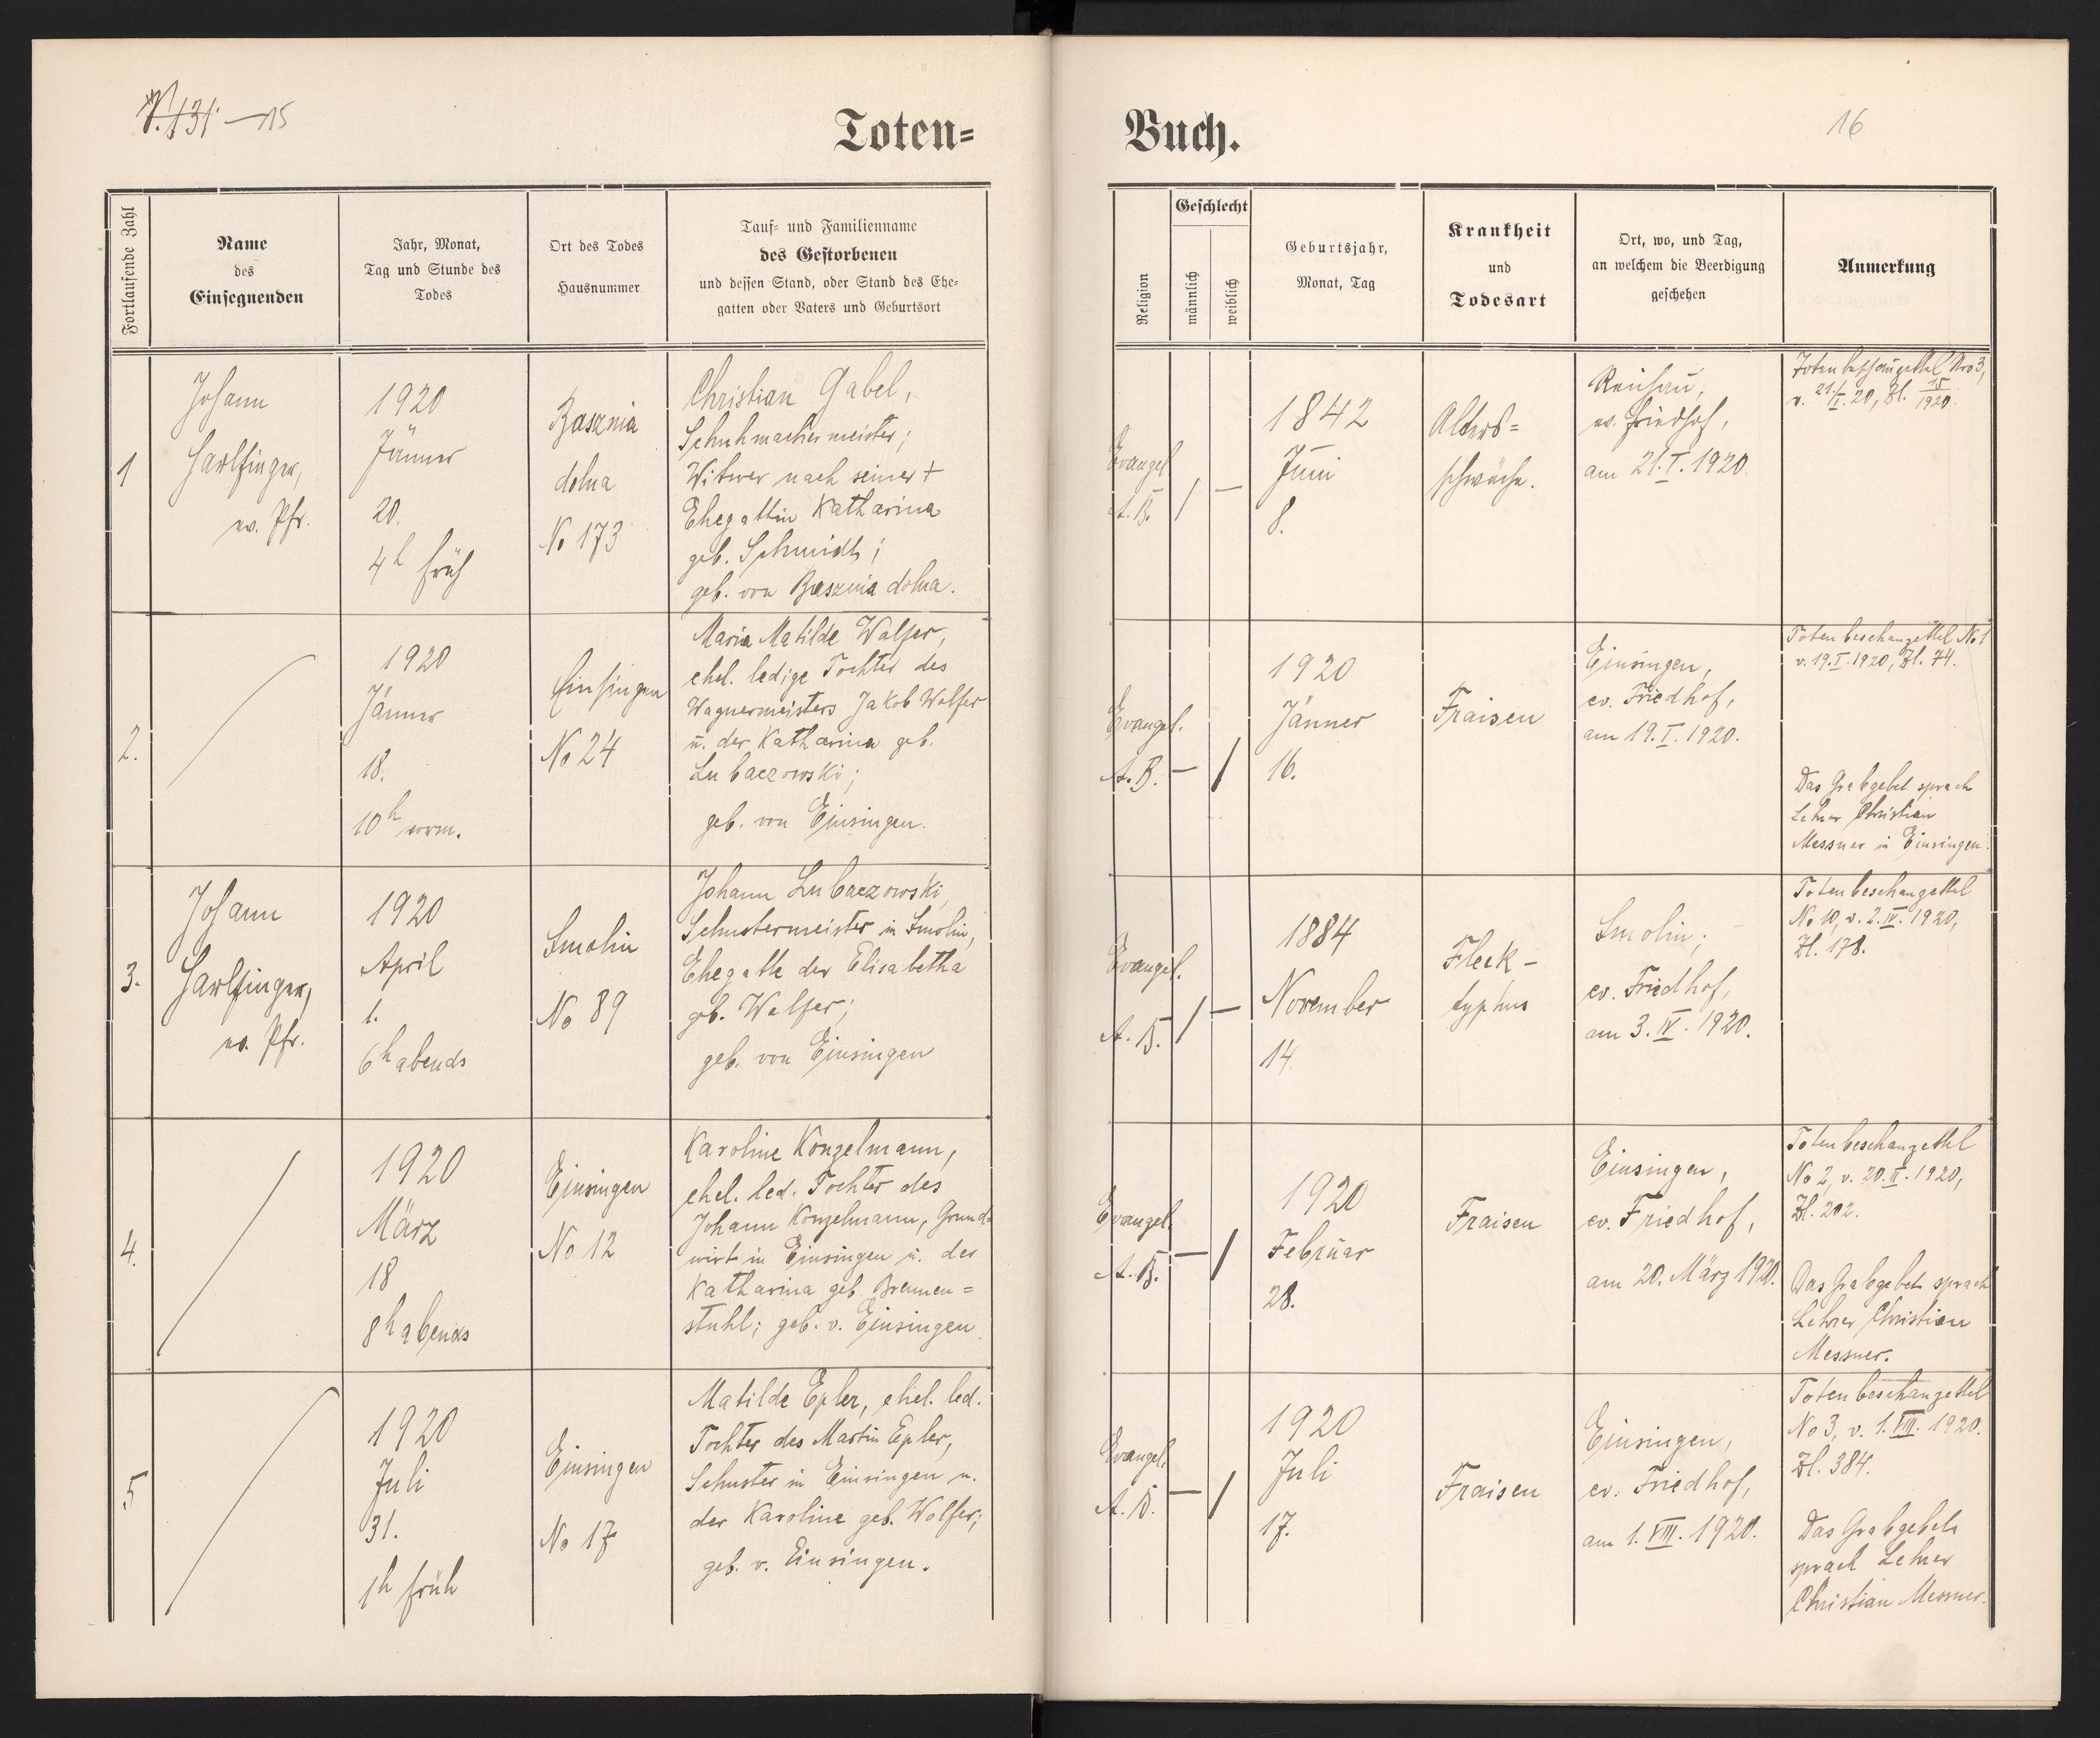 V. 131. — 15
Toten=
Fortlaufende Zahl
Name
des
Einsegnenden
Jahr, Monat,
Tag und Stunde des
Todes
Ort des Todes
Hausnummer
Tauf= und Familienname
des Gestorbenen
und dessen Stand, oder Stand des Ehe=
gatten oder Vaters und Geburtsort
1
Johann
Harlfinger,
ev. Pfr.
1920
Jänner
20.
4h früh
Basznia
dolna
No 173
Christian Gabel,
Schuhmachermeister;
Witwer nach seiner +
Ehegattin Katharina
geb. Schmidt;
geb. von Basznia dolna.
2.
1920
Jänner
18.
10h vorm.
Einsingen
No 24
Maria Matilde Wolfer,
ehel. ledige Tochter des
Wagnermeisters Jakob Wolfer
u. der Katharina geb.
Lubaczowski;
geb. von Einsingen.
3.
Johann
Harlfinger,
ev. Pfr.
1920
April
1.
6h abends
Smolin
No 89
Johann Lubaczowski,
Schustermeister in Smolin,
Ehegatte der Elisabetha
geb. Wolfer;
geb. von Einsingen
4.
1920
März
18
8h abends
Einsingen
No 12
Karoline Konzelmann,
ehel. led. Tochter des
Johann Konzelmann, Grund=
wirt in Einsingen u. der
Katharina geb. Bremen=
stuhl; geb. v. Einsingen.
5
1920
Juli
31.
1h früh
Einsingen
No 17
Matilde Epler, ehel. led.
Tochter des Martin Epler,
Schuster in Einsingen u.
der Karoline geb. Wolfer;
geb. v. Einsingen.
Buch.
16
Religion
Geschlecht
männlich
weiblich
Geburtsjahr,
Monat, Tag
Krankheit
und
Todesart
Ort, wo, und Tag,
an welchem die Beerdigung
geschehen
Anmerkung
Evangel.
A. B.
/ —
1842
Juni
8.
Alters=
schwäche.
Reichau,
ev. Friedhof,
am 21. I. 1920.
Totenbeschauzettel Nro 3,
v. 21/I. 20, Zl. 15/1920.
Evangel.
A. B.
— /
1920
Jänner
16.
Fraisen
Einsingen,
ev. Friedhof,
am 19. I. 1920.
Totenbeschauzettel No 1
v. 19. I. 1920, Zl. 74.
Das Grabgebet sprach
Lehrer Christian
Messner in Einsingen.
Evangel.
A. B.
/ —
1884
November
14.
Fleck-
typhus
Smolin;
ev. Friedhof,
am 3. IV. 1920.
Totenbeschauzettel
No 10, v. 2. IV. 1920,
Zl. 178.
Evangel.
A. B.
— /
1920
Februar
28.
Fraisen
Einsingen,
ev. Friedhof,
am 20. März 1920.
Totenbeschauzettel
No 2, v. 20. III. 1920,
Zl. 202.
Das Grabgebet sprach
Lehrer Christian
Messner.
Evangel.
A. B.
— /
1920
Juli
17.
Fraisen
Einsingen,
ev. Friedhof,
am 1. VIII. 1920.
Totenbeschauzettel
No 3, v. 1. VIII. 1920.
Zl. 384.
Das Grabgebet
sprach Lehrer
Christian Messner.